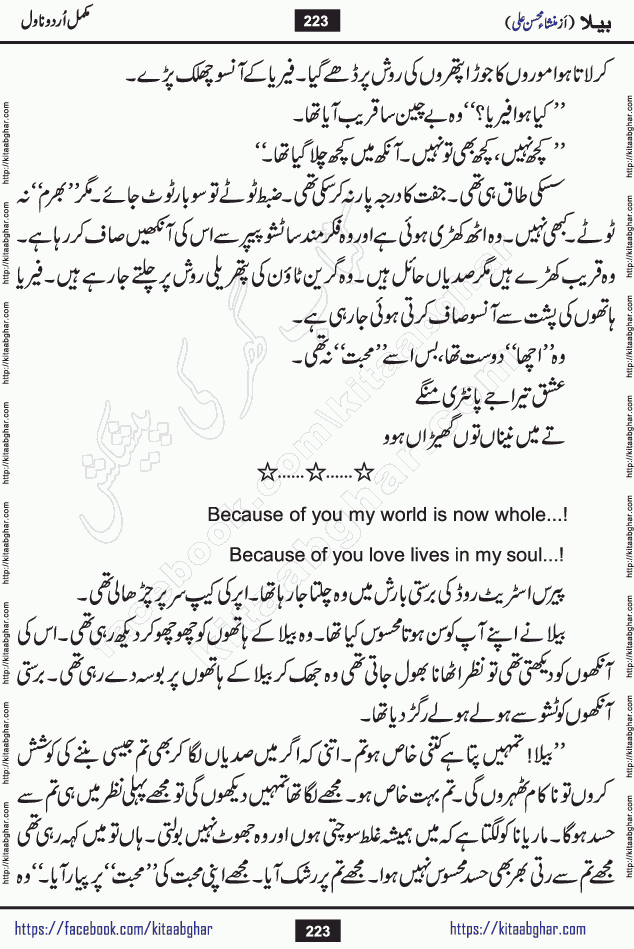 مکمل اُردو ناول
223
بیلا (از منشاء محسن علی)
کرلاتا ہوا موروں کا جوڑا پتھروں کی روش پر ڈھے گیا۔ فیریا کے آنسو چھلک پڑے۔
’’کیا ہوا فیریا؟‘‘ وہ بے چین سا قریب آیا تھا۔
’’کچھ نہیں، کچھ بھی تو نہیں۔ آنکھ میں کچھ چلا گیا تھا۔‘‘
سسکی طاق ہی تھی۔ جفت کا درجہ پار نہ کر سکی تھی۔ ضبط ٹوٹے تو سو بار ٹوٹ جائے۔ مگر ’’بھرم‘‘ نہ
ٹوٹے۔ کبھی نہیں۔ وہ اٹھ کھڑی ہوئی ہے اور وہ فکر مند سا ٹشو پیپر سے اس کی آنکھیں صاف کر رہا ہے۔
وہ قریب کھڑے ہیں مگر صدیاں حائل ہیں۔ وہ گرین ٹاؤن کی پتھریلی روش پر چلتے جا رہے ہیں۔ فیریا
ہاتھوں کی پشت سے آنسو صاف کرتی ہوئی جا رہی ہے۔
وہ ’’اچھا‘‘ دوست تھا، بس اسے ’’محبت‘‘ نہ تھی۔
عشق تیرا جے پانٹری منگے
تے میں نیناں توں گھیڑاں ہوو
☆......☆......☆
Because of you my world is now whole...!
Because of you love lives in my soul...!
پیرس اسٹریٹ روڈ کی برستی بارش میں وہ چلتا جا رہا تھا۔ اپر کی کیپ سر پر چڑھا لی تھی۔
بیلا نے اپنے آپ کو سن ہوتا محسوس کیا تھا۔ وہ بیلا کے ہاتھوں کو چھو چھو کر دیکھ رہی تھی۔ اس کی
آنکھوں کو دیکھتی تھی تو نظر اٹھانا بھول جاتی تھی وہ جھک کر بیلا کے ہاتھوں پر بوسہ دے رہی تھی۔ برستی
آنکھوں کو ٹشو سے ہولے ہولے رگڑ دیا تھا۔
’’بیلا! تمہیں پتا ہے کتنی خاص ہو تم۔ اتنی کہ اگر میں صدیاں لگا کر بھی تم جیسی بننے کی کوشش
کروں تو ناکام ٹھہروں گی۔ تم بہت خاص ہو۔ مجھے لگا تھا تمہیں دیکھوں گی تو مجھے پہلی نظر میں ہی تم سے
حسد ہوگا۔ ماریانا کو لگتا ہے کہ میں ہمیشہ غلط سوچتی ہوں اور وہ جھوٹ نہیں بولتی۔ ہاں تو میں کہہ رہی تھی
مجھے تم سے رتی بھر بھی حسد محسوس نہیں ہوا۔ مجھے تم پر رشک آیا۔ مجھے اپنی محبت کی ’’محبت‘‘ پر پیار آیا۔‘‘ وہ
https://facebook.com/kitaabghar
223
https://kitaabghar.com
http://kitaabghar.com